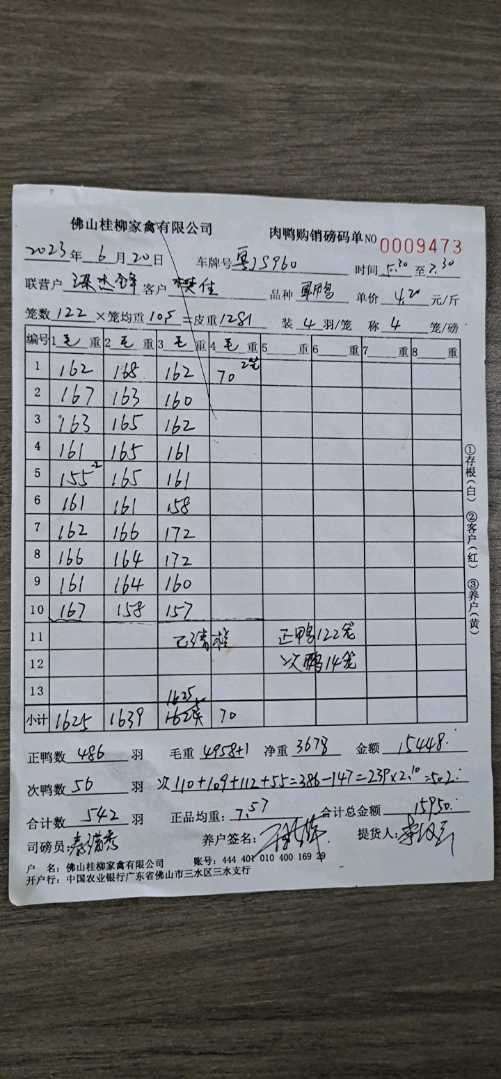 佛山桂柳家禽有限公司 肉鸭购销磅码单 NO 0009473
2023年 6月20日 车牌号 粤JS960 时间 5.30 至 7.30
联营户 客户 樊佳 品种 单价 4.20 元/斤
笼数 122 ×笼均重 10.5 =皮重 1281 装 4 羽/笼 称 4 笼/磅
编号 1 毛 重 2 毛 重 3 毛 重 4 毛 重 5 重 6 重 7 重 8 重
1 162 168 162 70 2笼
2 167 163 160
3 163 165 162
4 161 165 161
5 155 -2 165 161
6 161 161 158
7 162 166 172
8 166 164 172
9 161 164 160
10 167 158 157
11 已清栏 正鸭122笼
12 次鸭14笼
13 1625
小计 1625 1639 70
正鸭数 486 羽 毛重 4958+1 净重 3678 金额 15448.
次鸭数 56 羽 次110+109+112+55=386-147=239×2.10=502.
合计数 542 羽 正品均重: 7.57 合计总金额 15950.
司磅员: 养户签名: 提货人:
户 名: 佛山桂柳家禽有限公司 账号: 444 401 010 400 169 29
开户行: 中国农业银行广东省佛山市三水区三水支行
①存根(白) ②客户(红) ③养户(黄)